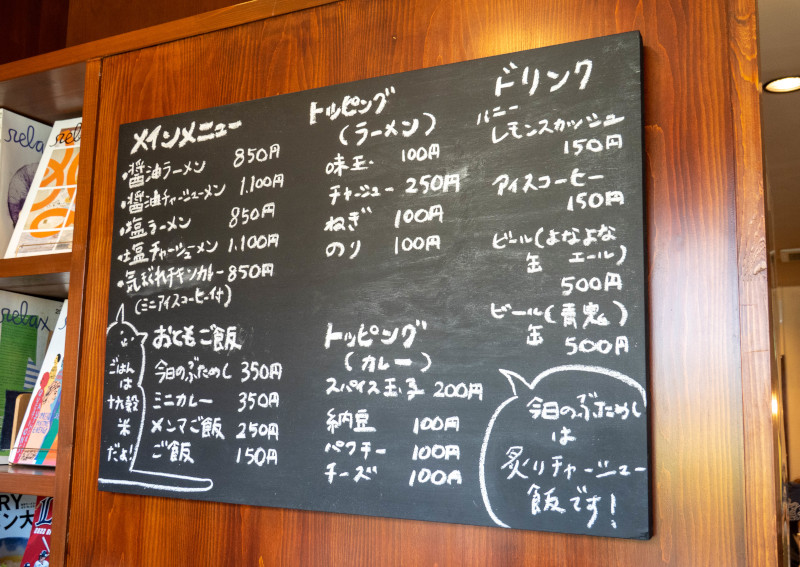 メインメニュー
・醤油ラーメン 850円
・醤油チャーシューメン 1.100円
・塩ラーメン 850円
・塩チャーシューメン 1.100円
・気まぐれチキンカレー 850円
(ミニアイスコーヒー付)
おともご飯
今日のぶためし 350円
ミニカレー 350円
メンマご飯 250円
ご飯 150円
ごはん
は
十六穀
米
だよ!
トッピング
(ラーメン)
味玉 100円
チャーシュー 250円
ねぎ 100円
のり 100円
トッピング
(カレー)
スパイス玉子 200円
納豆 100円
パクチー 100円
チーズ 100円
ドリンク
ハニー
レモンスカッシュ
150円
アイスコーヒー
150円
ビール(よなよな
缶 エール)
500円
ビール(青鬼)
缶
500円
今日のぶためし
は
炙りチャーシュー
飯です!
relax
relax
relax